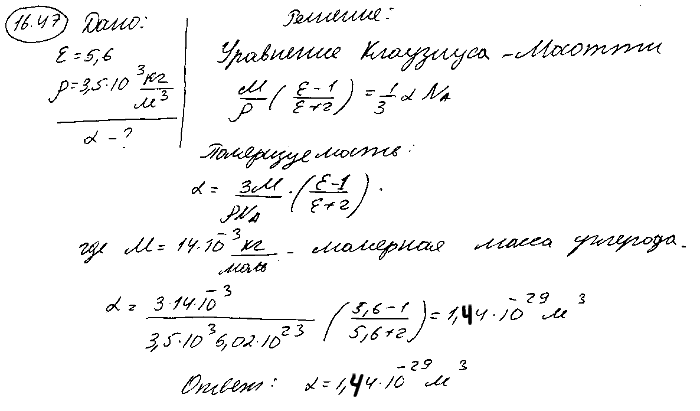 16.47 Дано:
ε = 5,6
ρ = 3,5·10³ кг/м³
α - ?
Решение:
Уравнение Клаузиуса - Мосотти
M/ρ ( (ε-1)/(ε+2) ) = 1/3 α N_A
Поляризуемость:
α = 3M/(ρN_A) · ( (ε-1)/(ε+2) ) .
где M = 14·10⁻³ кг/моль - молярная масса углерода.
α = 3·14·10⁻³ / (3,5·10³ 6,02·10²³) ( (5,6-1)/(5,6+2) ) = 1,44·10⁻²⁹ м³
Ответ: α = 1,44·10⁻²⁹ м³